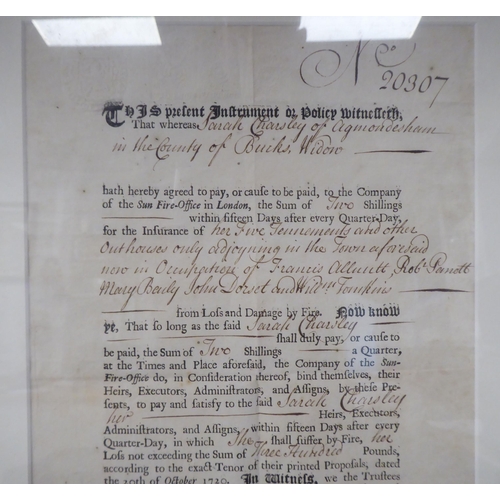 No
20307
THIS present Instrument or Policy witnesseth,
That whereas Sarah Charsley of Agmondesham
in the County of Bucks, Widow
hath hereby agreed to pay, or cause to be paid, to the Company
of the Sun Fire-Office in London, the Sum of Two Shillings
within fifteen Days after every Quarter-Day,
for the Insurance of her Five Tennements and other
Outhouses only adjoyning in the Town aforesaid
now in Occupation of Francis Allnutt, Robt. Parrott
Mary Baily John Dorset and Widw Tomkins
from Loss and Damage by Fire. Now know
ye, That so long as the said Sarah Charsley
shall duly pay, or cause to
be paid, the Sum of Two Shillings a Quarter,
at the Times and Place aforesaid, the Company of the Sun-
Fire-Office do, in Consideration thereof, bind themselves, their
Heirs, Executors, Administrators, and Assigns, by these Pre-
sents, to pay and satisfy to the said Sarah Charsley
her Heirs, Executors,
Administrators, and Assigns, within fifteen Days after every
Quarter-Day, in which She shall suffer by Fire, her
Loss not exceeding the Sum of Three Hundred Pounds,
according to the exact Tenor of their printed Proposals, dated
the 20th of October 1720. In Witness, we the Trustees